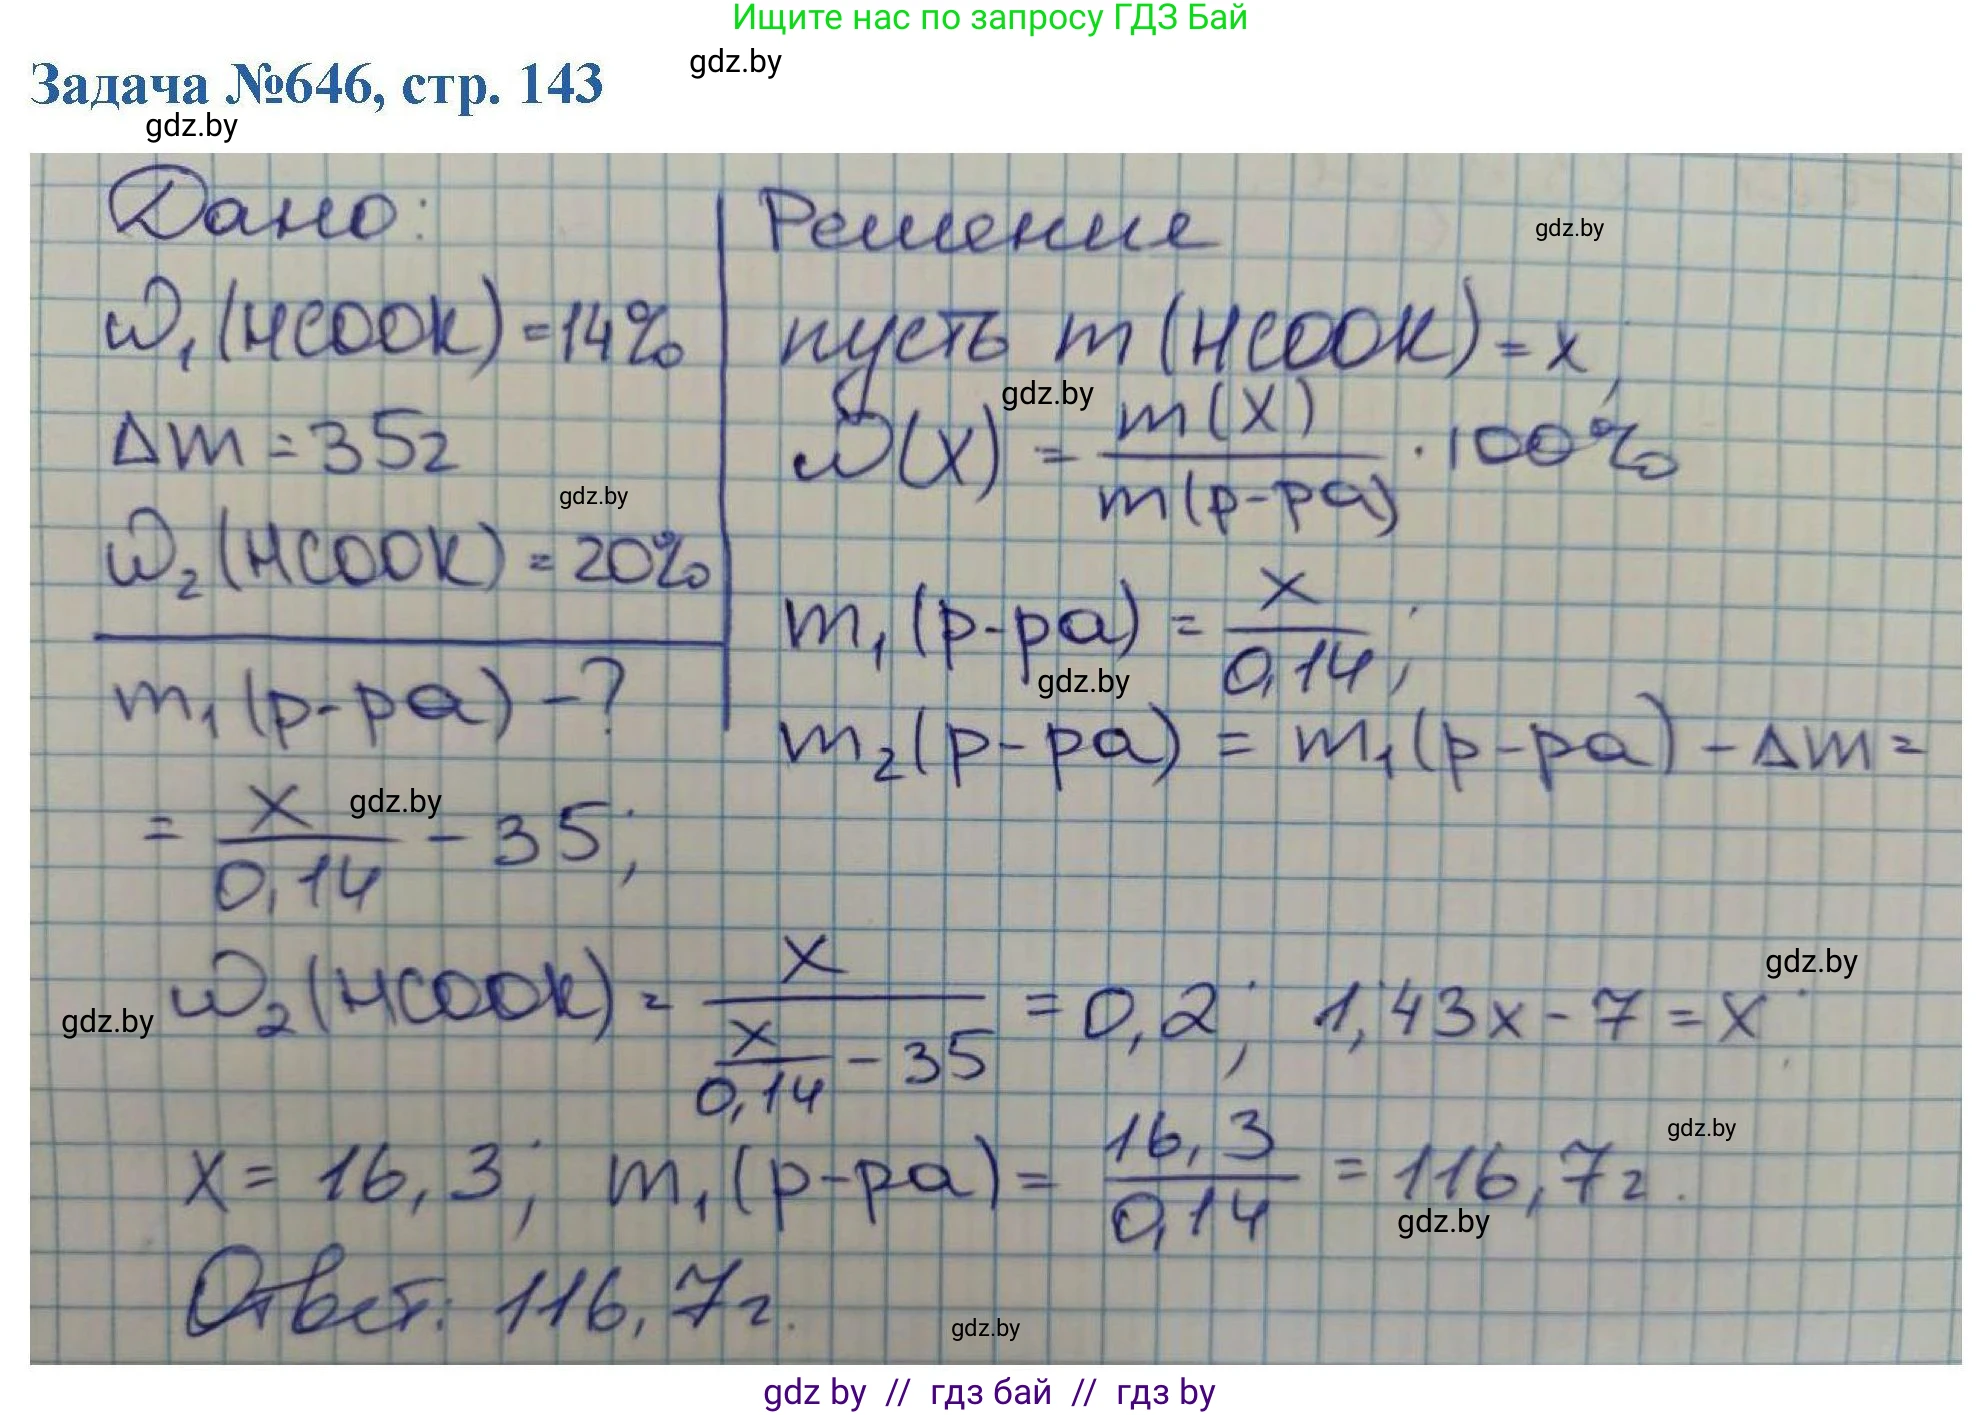 Ищите нас по запросу ГДЗ Бай
gdz.by
Задача №646, стр. 143
gdz.by
Дано:
Решение
gdz.by
ω₁(HCOOK) = 14%
пусть m(HCOOK) = x;
gdz.by
Δm = 35г
ω(X) = m(X) / m(р-ра) · 100%
gdz.by
ω₂(HCOOK) = 20%
m₁(р-ра) = x / 0,14;
gdz.by
m₁(р-ра) - ?
m₂(р-ра) = m₁(р-ра) - Δm =
= x / 0,14 - 35;
gdz.by
gdz.by
gdz.by
ω₂(HCOOK) = x / (x / 0,14 - 35) = 0,2; 1,43x - 7 = x;
gdz.by
x = 16,3; m₁(р-ра) = 16,3 / 0,14 = 116,7г.
gdz.by
Ответ: 116,7г.
gdz.by
gdz by // гдз бай // гдз by